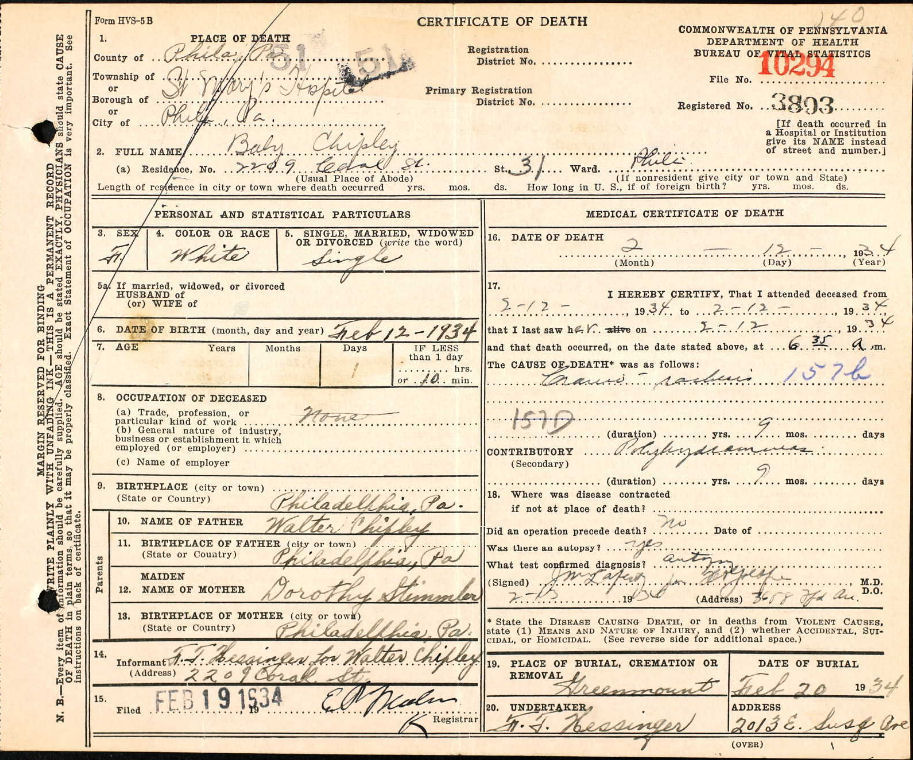 Form HVS-5 B
CERTIFICATE OF DEATH
240
COMMONWEALTH OF PENNSYLVANIA
DEPARTMENT OF HEALTH
BUREAU OF VITAL STATISTICS
File No. 10294
Registered No. 3893
[If death occurred in a Hospital or Institution give its NAME instead of street and number.]
1. PLACE OF DEATH
County of Phila, Pa. 51 51
Township of
or St Mary's Hospital
Borough of
or
City of Phila, Pa.
Registration District No.
Primary Registration District No.
2. FULL NAME Baby Chipley
(a) Residence, No. 2209 St. St. 31 Ward. Phila
(Usual Place of Abode) (If nonresident give city or town and State)
Length of residence in city or town where death occurred yrs. mos. ds. How long in U. S., if of foreign birth? yrs. mos. ds.
PERSONAL AND STATISTICAL PARTICULARS
3. SEX F.
4. COLOR OR RACE White
5. SINGLE, MARRIED, WIDOWED OR DIVORCED (write the word) Single
5a. If married, widowed, or divorced
HUSBAND of
(or) WIFE of
6. DATE OF BIRTH (month, day and year) Feb 12-1934
7. AGE Years Months Days 1 IF LESS than 1 day
hrs.
or 10 min.
8. OCCUPATION OF DECEASED
(a) Trade, profession, or particular kind of work None
(b) General nature of industry, business or establishment in which employed (or employer)
(c) Name of employer
9. BIRTHPLACE (city or town)
(State or Country) Philadelphia, Pa.
Parents
10. NAME OF FATHER Walter Chipley
11. BIRTHPLACE OF FATHER (city or town)
(State or Country) Philadelphia, Pa
12. MAIDEN NAME OF MOTHER Dorothy Stimmler
13. BIRTHPLACE OF MOTHER (city or town)
(State or Country) Philadelphia, Pa.
14. Informant F. T. Hessinger for Walter Chipley
(Address) 2209 Coral St.
15. Filed FEB 19 1934 19
Registrar
MEDICAL CERTIFICATE OF DEATH
16. DATE OF DEATH
2 - 12 - 1934
(Month) (Day) (Year)
17. I HEREBY CERTIFY, That I attended deceased from
2-12- , 1934 to 2-12- , 1934
that I last saw her alive on 2-12 , 1934
and that death occurred, on the date stated above, at 6 35 a. m.
The CAUSE OF DEATH* was as follows:
Cranio - 157b
157D
(duration) yrs. 9 mos. days
CONTRIBUTORY Polyhydramnios
(Secondary)
(duration) yrs. 9 mos. days
18. Where was disease contracted
if not at place of death?
Did an operation precede death? no Date of
Was there an autopsy? yes
What test confirmed diagnosis? autopsy
(Signed) M.D.
D.O.
2-13 1934 (Address)
* State the DISEASE CAUSING DEATH, or in deaths from VIOLENT CAUSES, state (1) MEANS AND NATURE OF INJURY, and (2) whether ACCIDENTAL, SUICIDAL, or HOMICIDAL. (See reverse side for additional space.)
19. PLACE OF BURIAL, CREMATION OR REMOVAL
Greenmount
DATE OF BURIAL
Feb 20 1934
20. UNDERTAKER
F. T. Hessinger
ADDRESS
2013 E. Susq Ave
(OVER)
MARGIN RESERVED FOR BINDING
WRITE PLAINLY WITH UNFADING INK—THIS IS A PERMANENT RECORD
N. B.—Every item of information should be carefully supplied. AGE should be stated EXACTLY. PHYSICIANS should state CAUSE OF DEATH in plain terms, so that it may be properly classified. Exact Statement of OCCUPATION is very important. See instructions on back of certificate.